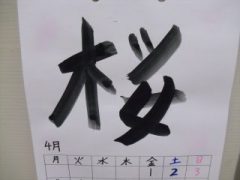 桜
4月
月 火 水 木 金 土 日
1 2 3